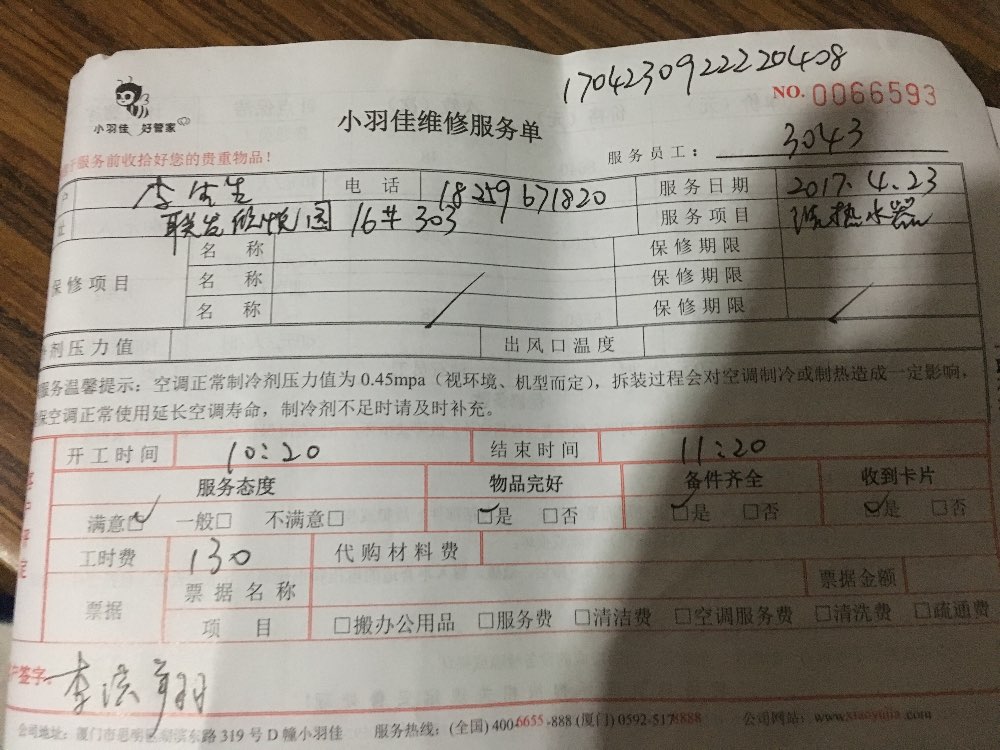 17042309222220408
小羽佳 好管家
小羽佳维修服务单
NO. 0066593
服务前收拾好您的贵重物品！
服务员工： 3043
李先生 电话 18259671820 服务日期 2017.4.23
联发欣悦园 16# 303 服务项目 洗热水器
保修项目 名称 保修期限
名称 保修期限
名称 保修期限
剂压力值 出风口温度
服务温馨提示：空调正常制冷剂压力值为 0.45mpa（视环境、机型而定），拆装过程会对空调制冷或制热造成一定影响，
保空调正常使用延长空调寿命，制冷剂不足时请及时补充。
开工时间 10:20 结束时间 11:20
服务态度 物品完好 备件齐全 收到卡片
满意☑ 一般□ 不满意□ ☑是 □否 ☑是 □否 ☑是 □否
工时费 130 代购材料费
票据 票据名称 票据金额
项目 □搬办公用品 □服务费 □清洁费 □空调服务费 □清洗费 □疏通费
户签字： 李洪翔
公司地址：厦门市思明区湖滨东路 319 号 D 幢小羽佳 服务热线：(全国) 4006655-888 (厦门) 0592-5178888 公司网站：www.xiaoyujia.com